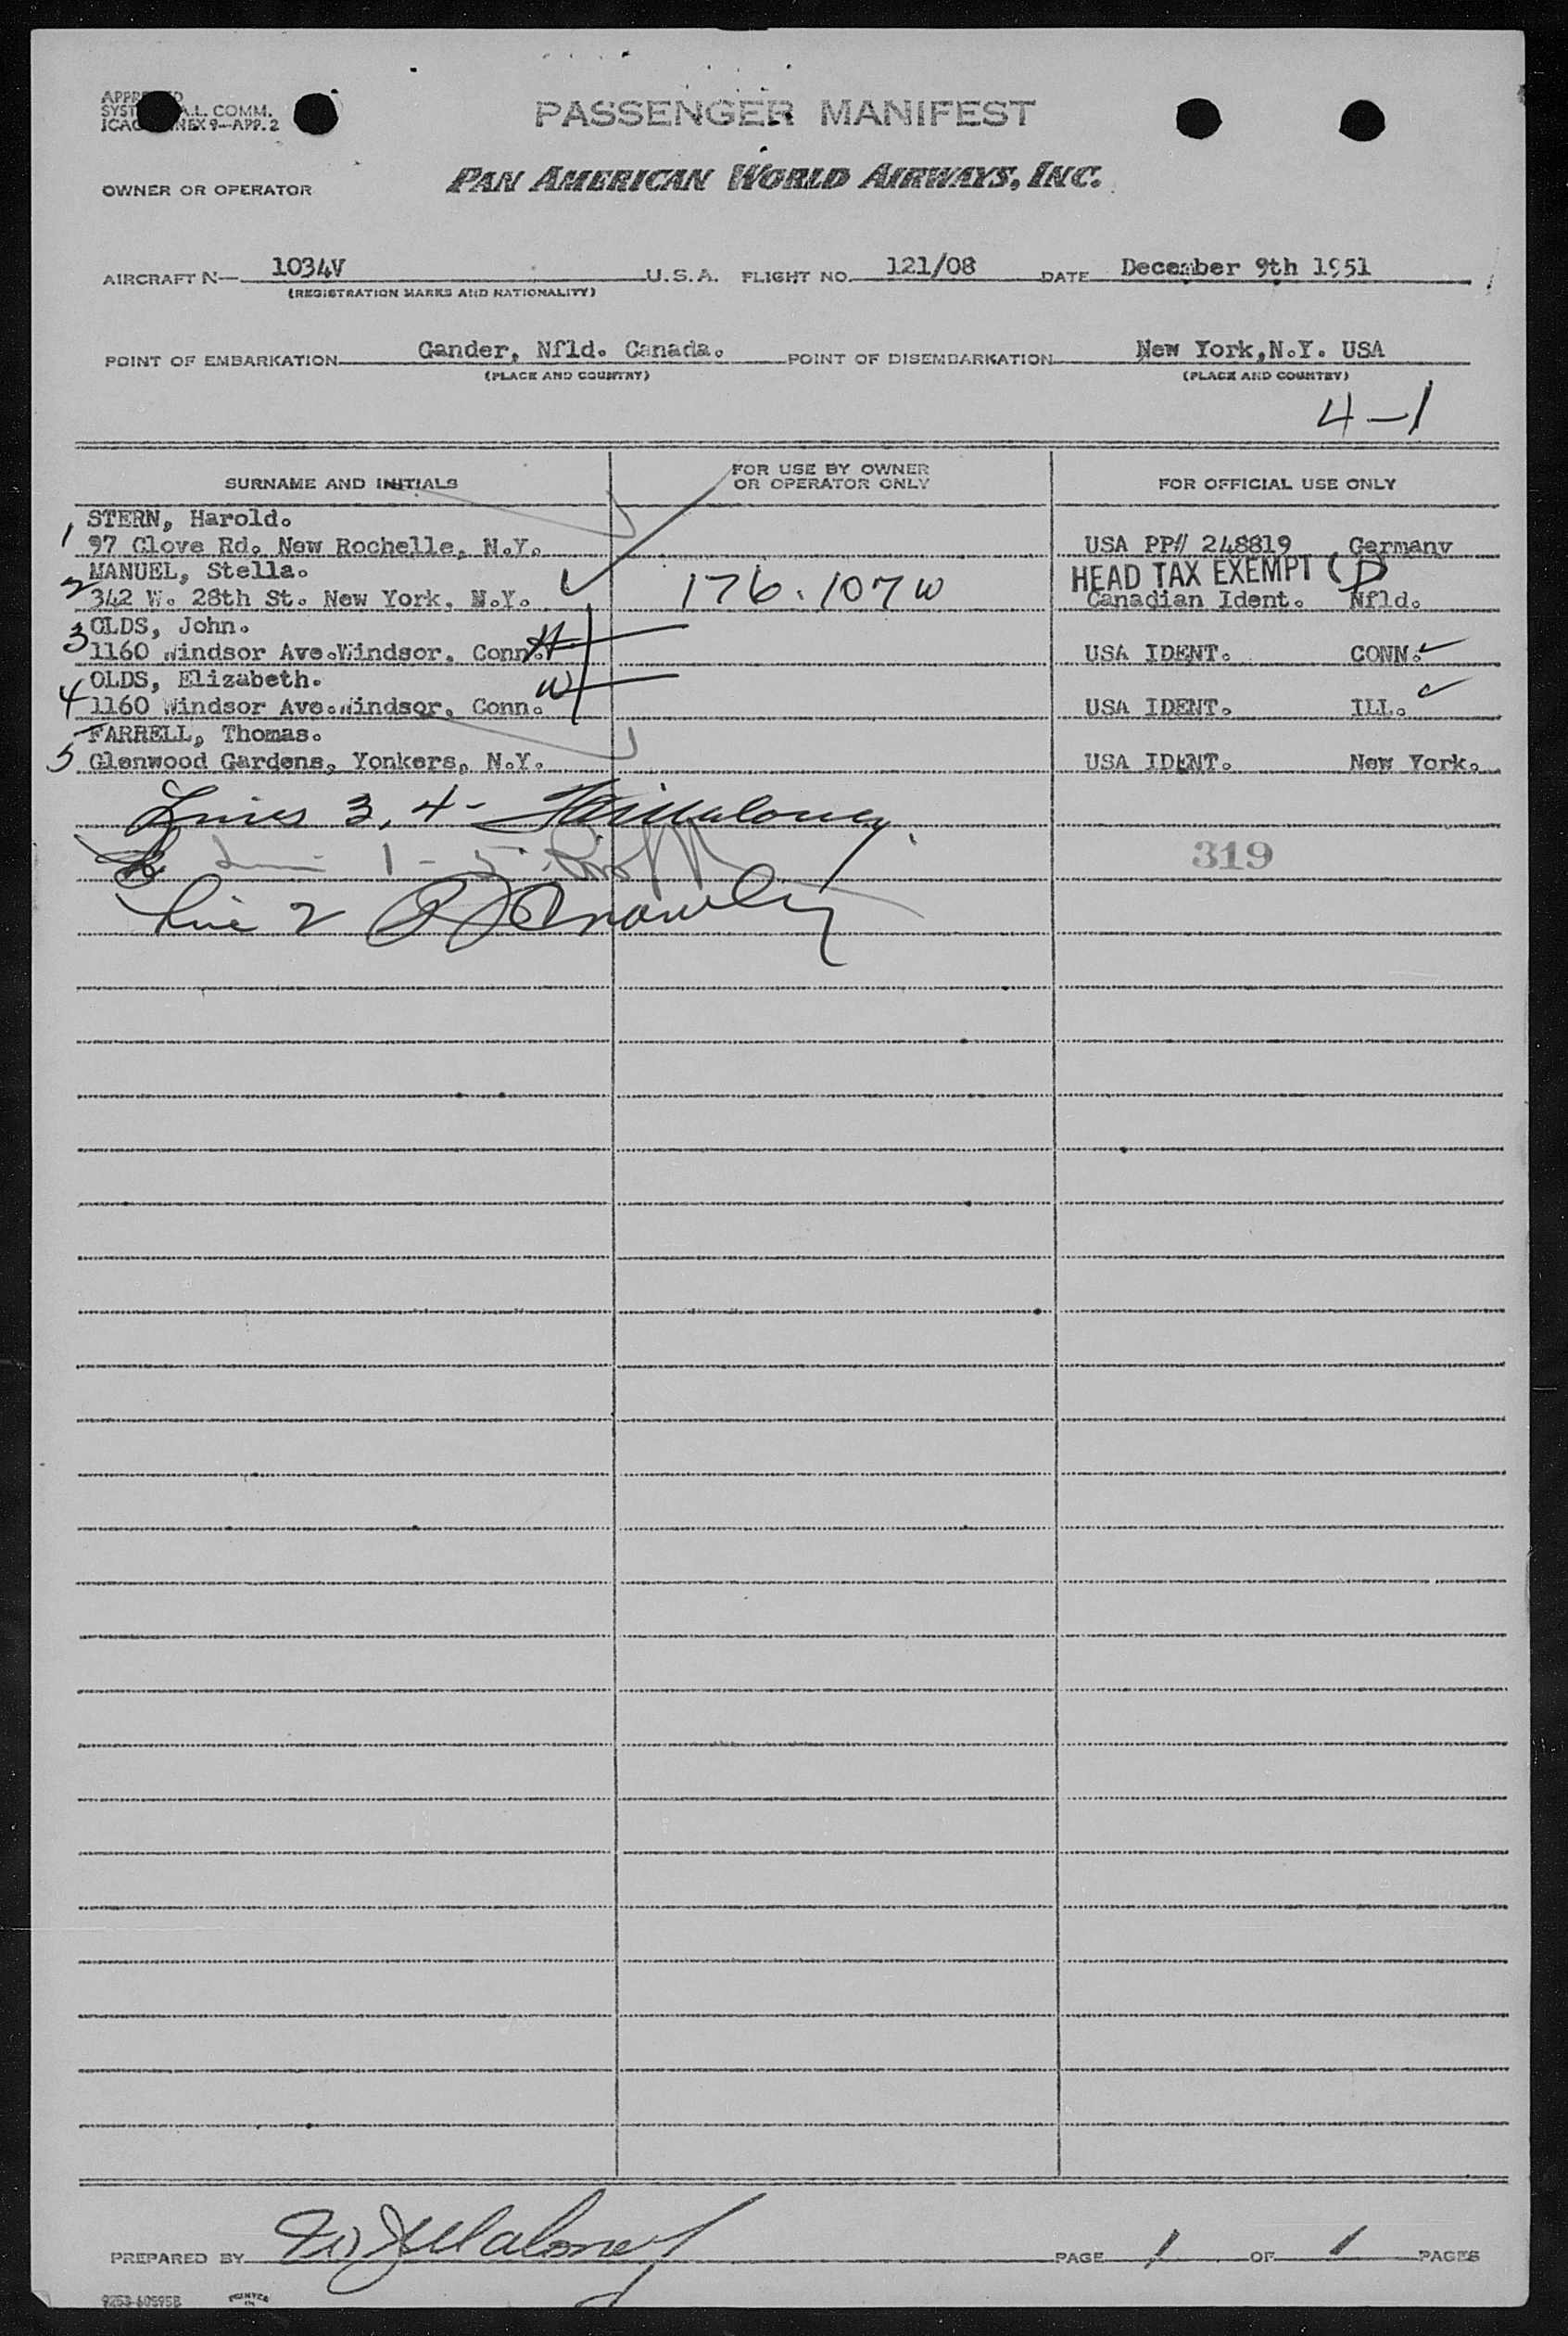 PASSENGER MANIFEST
OWNER OR OPERATOR PAN AMERICAN WORLD AIRWAYS, INC.
AIRCRAFT N— 1034V U.S.A. FLIGHT NO. 121/08 DATE December 9th 1951
(REGISTRATION MARKS AND NATIONALITY)
POINT OF EMBARKATION Gander, Nfld. Canada. POINT OF DISEMBARKATION New York,N.Y. USA
(PLACE AND COUNTRY) (PLACE AND COUNTRY)
4-1
SURNAME AND INITIALS FOR USE BY OWNER OR OPERATOR ONLY FOR OFFICIAL USE ONLY
STERN, Harold.
1 97 Clove Rd. New Rochelle, N.Y. USA PP# 248819 Germany
MANUEL, Stella. HEAD TAX EXEMPT (D
2 342 W. 28th St. New York, N.Y. 176.107 W Canadian Ident. Nfld.
OLDS, John.
3 1160 Windsor Ave.Windsor, Conn. H USA IDENT. CONN.
OLDS, Elizabeth.
4 1160 Windsor Ave.Windsor, Conn. W USA IDENT. ILL.
FARRELL, Thomas.
5 Glenwood Gardens, Yonkers, N.Y. USA IDENT. New York.
Lines 3, 4 -
1 - 5 319
Line 2
PREPARED BY PAGE 1 OF 1 PAGES